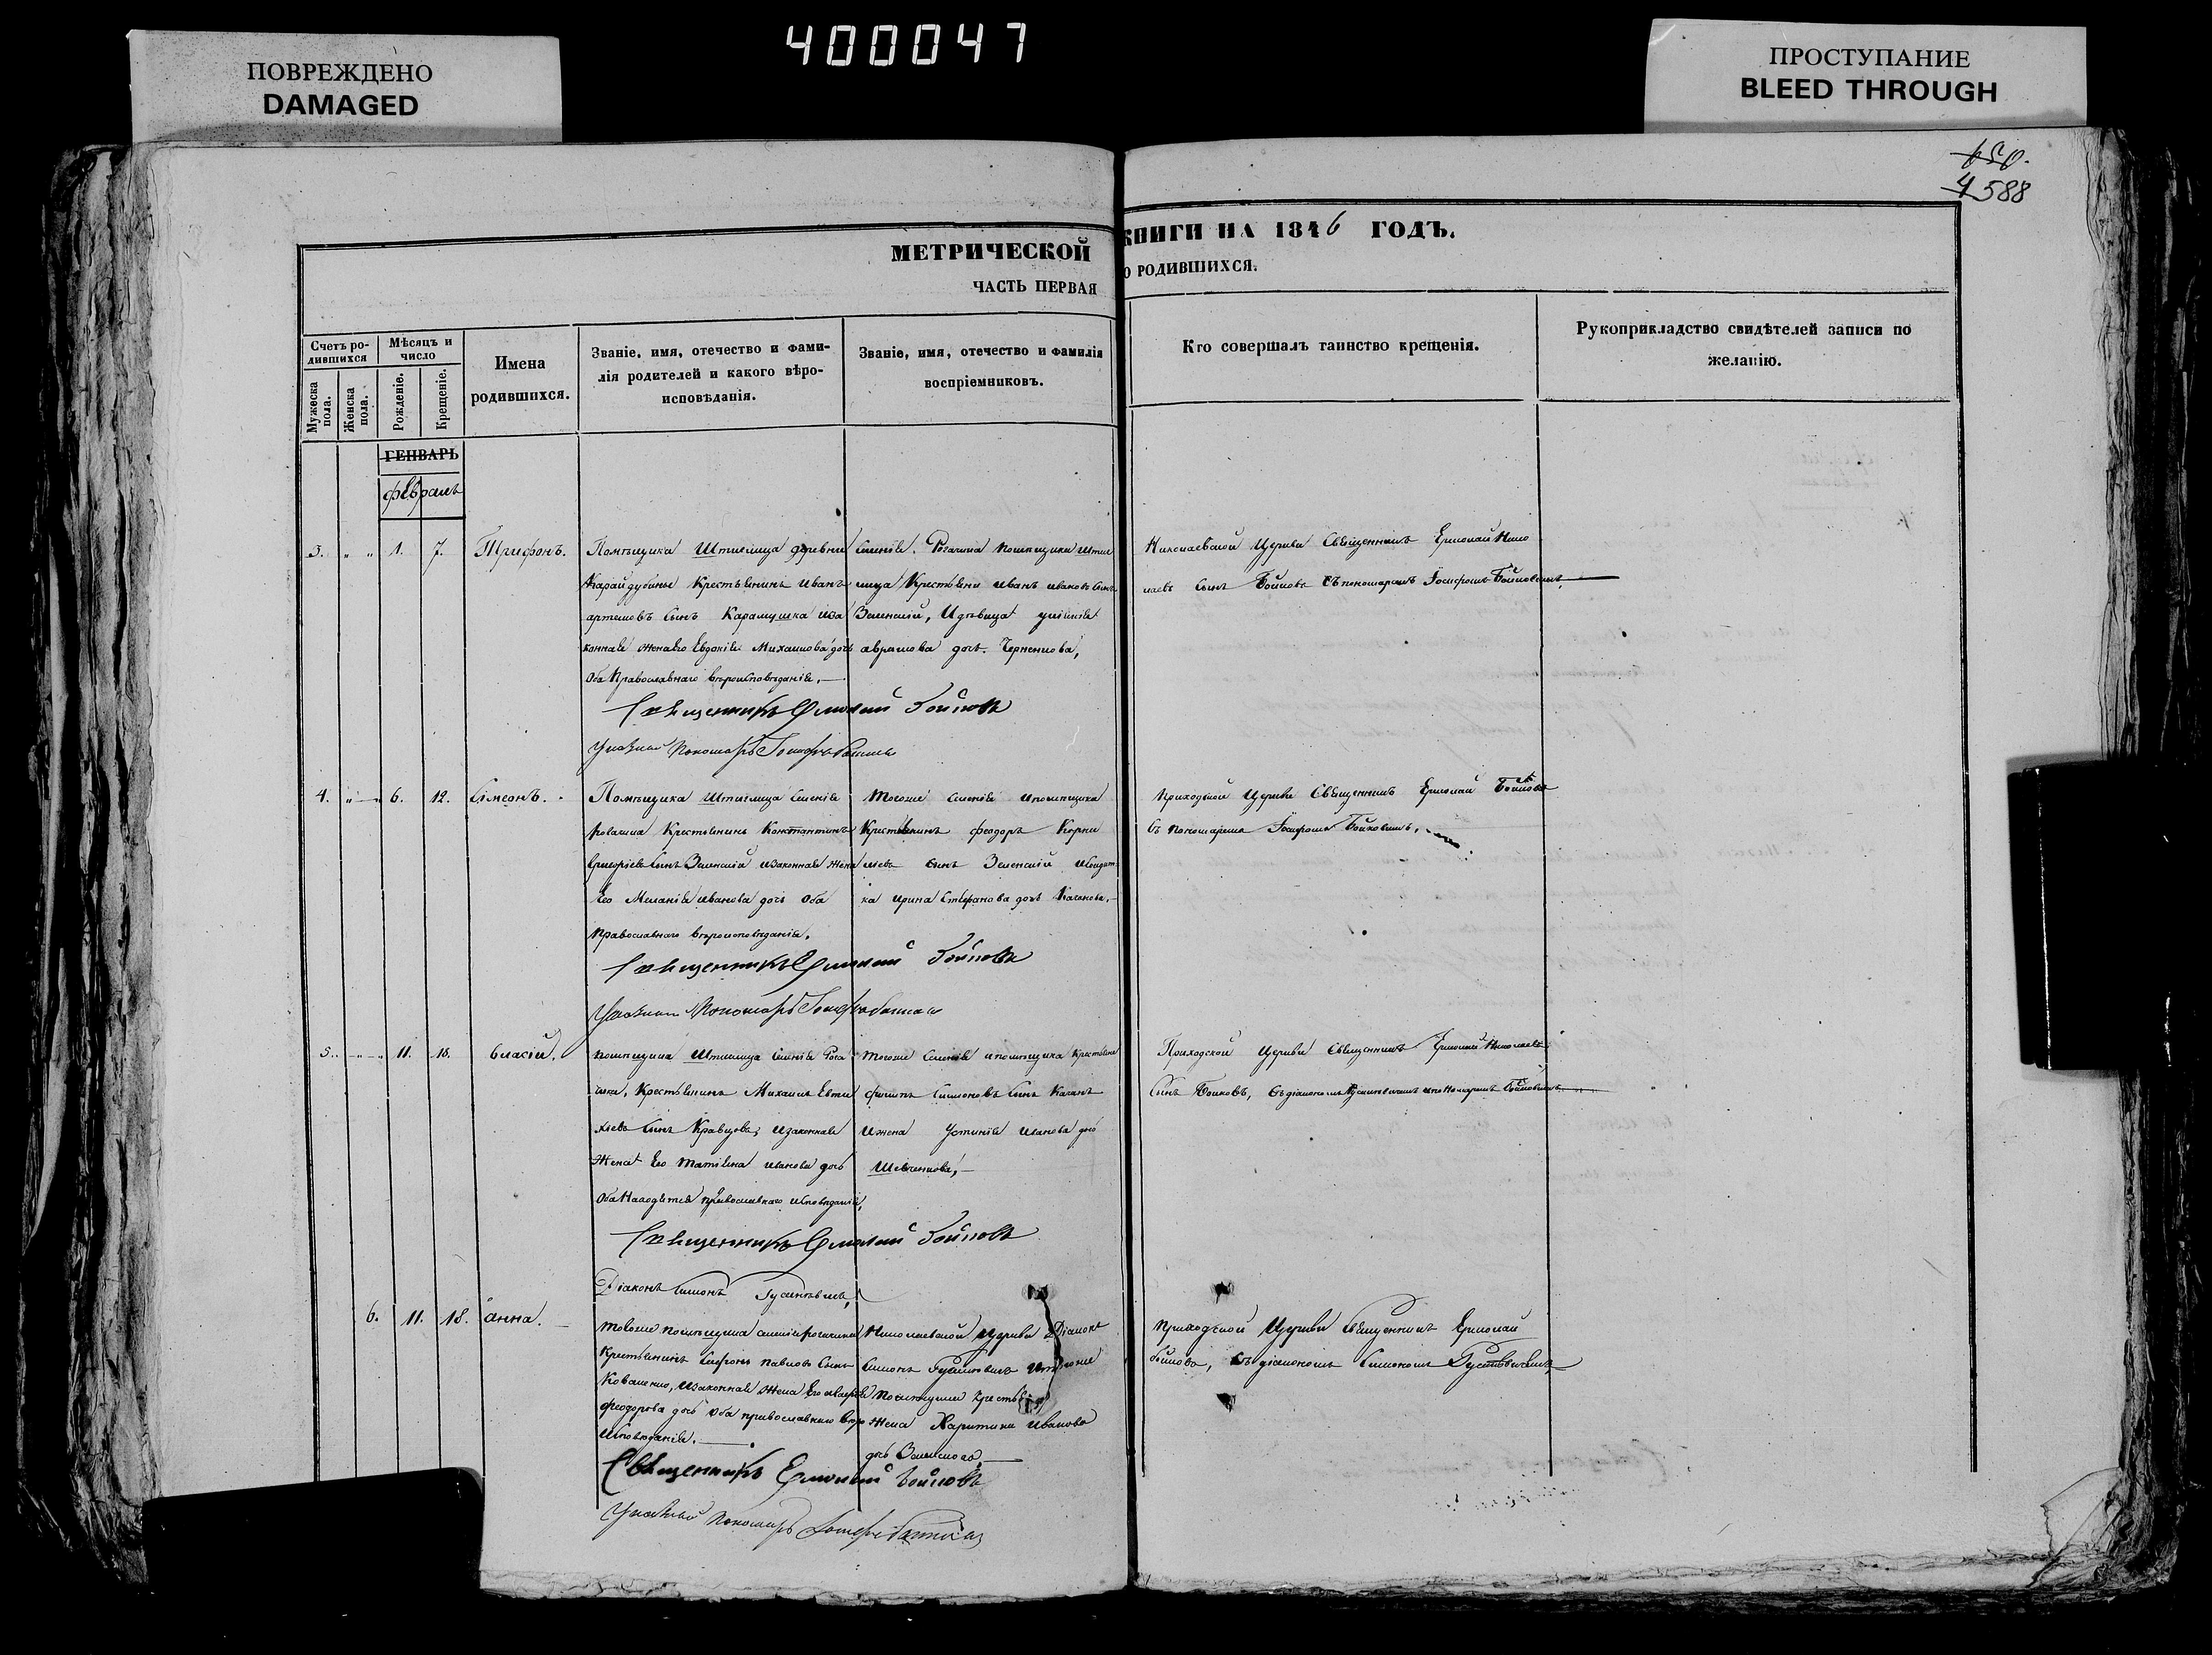 400047
ПОВРЕЖДЕНО
DAMAGED
ПРОСТУПАНИЕ
BLEED THROUGH
4588
МЕТРИЧЕСКОЙ КНИГИ НА 1846 ГОДЪ.
ЧАСТЬ ПЕРВАЯ О РОДИВШИХСЯ.
Счетъ ро-
дившихся
Мужеска пола.
Женска пола.
Мѣсяцъ и
число
Рожденіе.
Крещеніе.
Имена
родившихся.
Званіе, имя, отечество и фами-
лія родителей и какого вѣро-
исповѣданія.
Званіе, имя, отечество и фамилія
воспріемниковъ.
Кто совершалъ таинство крещенія.
Рукоприкладство свидѣтелей записи по
желанію.
ГЕНВАРЬ
февраль
3. „ „ 1. 7. Трифонъ.
Помѣщика Штиглица деревни
Карайдубины Крестьянинъ Иванъ
артемовъ сынъ Карамушка иза
конная жена его Евдокія Михаилова дочь
Оба Православнаго вѣроисповѣданія.
Священникъ Ермолай Бойковъ
Указный Пономарь
Селенія Рогачика помѣщика Штиг
лица Крестьяне иванъ ивановъ сынъ
Зеленскій, И дѣвица
аврамова дочь. Черненкова,
Николаевской Церкви Священникъ Ермолай Нико
лаевъ Сынъ Бойковъ съ пономаремъ Іосифомъ Бойковымъ,
4. „ „ 6. 12. Сімеонъ.
Помѣщика Штиглица Селенія
Рогачика Крестьянинъ Константинъ
Григоріевъ Сынъ Зеленскій изаконная жена
Его Меланія иванова дочь Оба
Православнаго вѣроисповѣданія.
Священникъ Ермолай Бойковъ
Указный Пономарь
Тогоже Селенія ипомѣщика
Крестьянинъ феодоръ Корни
ліевъ сынъ Зеленскій исолдат
ка ирина Стефанова дочь
Приходской Церкви Священникъ Ермолай Бойковъ
съ пономаремъ Іосифомъ Бойковымъ.
5. „ „ 11. 18. Власій.
помѣщика Штиглица Селенія Рога
чика, Крестьянинъ Михаилъ Евти
хіевъ сынъ Кравцовъ, изаконная
Жена Его иванова дочь
Оба Находятся православнаго исповѣданія,
Священникъ Ермолай Бойковъ
Діаконъ Симонъ
Тогоже Селенія ипомѣщика Крестьяне
филипъ Симоновъ сынъ
Ижена Устинія Иванова дочь
Шевченкова,
Приходской Церкви Священникъ Ермолай Николаевъ
Сынъ Бойковъ, съ діакономъ ипономаремъ Бойковымъ
6. 11. 18. анна.
Тогоже помѣщика селенія рогачика
Крестьянинъ павловъ Сынъ
Коваленко, изаконная жена Его
феодорова дочь Оба православнаго вѣро
исповѣданія.
Священникъ Ермолай Бойковъ
Указный Пономарь
Николаевской Церкви Діаконъ
Симонъ итогоже
Помѣщика крестья
жена Харитина Иванова
дочь
Приходской Церкви Священникъ Ермолай
Бойковъ, съ діакономъ Симономъ